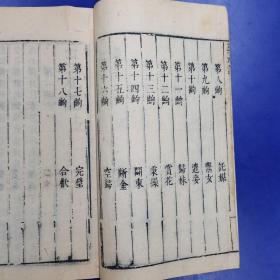 第八齣 託媒
第九齣
第十齣 遣妾
第十一齣 歸妹
第十二齣 賞花
第十三齣 秉操
第十四齣 闘東
第十五齣 斷金
第十六齣 空歸
第十七齣 完璧
第十八齣 合歡